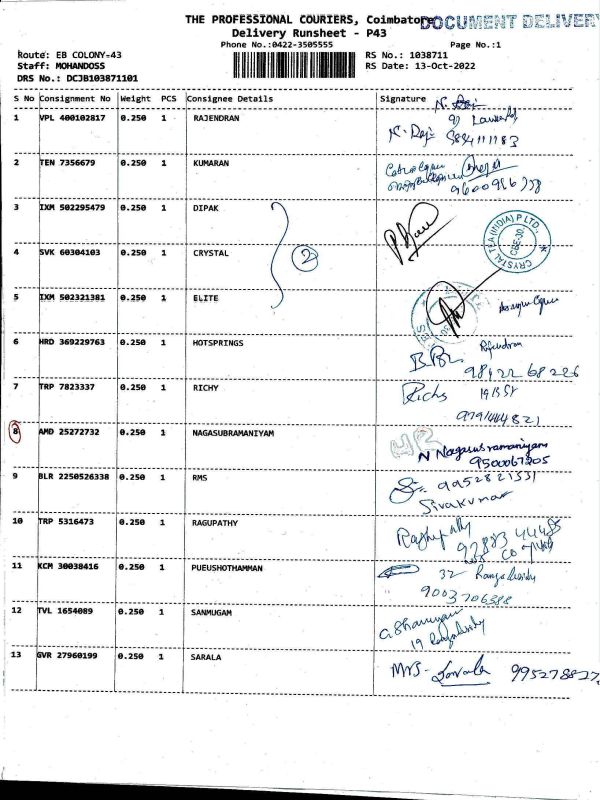 THE PROFESSIONAL COURIERS, Coimbatore
DOCUMENT DELIVERY
Delivery Runsheet - P43
Phone No.:0422-3505555 Page No.:1
Route: EB COLONY-43 RS No.: 1038711
Staff: MOHANDOSS RS Date: 13-Oct-2022
DRS No.: DCJB103871101
S No Consignment No Weight PCS Consignee Details Signature
1 VPL 400102817 0.250 1 RAJENDRAN
2 TEN 7356679 0.250 1 KUMARAN
3 IXM 502295479 0.250 1 DIPAK
CRYSTAL TEA (INDIA) P LTD.
2
4 SVK 60304103 0.250 1 CRYSTAL
5 IXM 502321381 0.250 1 ELITE
6 HRD 369229763 0.250 1 HOTSPRINGS
98422 68226
7 TRP 7823337 0.250 1 RICHY Richs
8 AMD 25272732 0.250 1 NAGASUBRAMANIYAM
N Nagasubramaniyam
9500067205
9 BLR 2250526338 0.250 1 RMS 9952821531
Sivakumar
10 TRP 5316473 0.250 1 RAGUPATHY
11 KCM 30038416 0.250 1 PUEUSHOTHAMMAN 32
9003706388
12 TVL 1654089 0.250 1 SANMUGAM
19
13 GVR 27960199 0.250 1 SARALA Mrs. Sarala 995278827